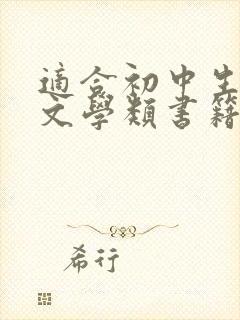 適合初中生
文學類書籍
希行